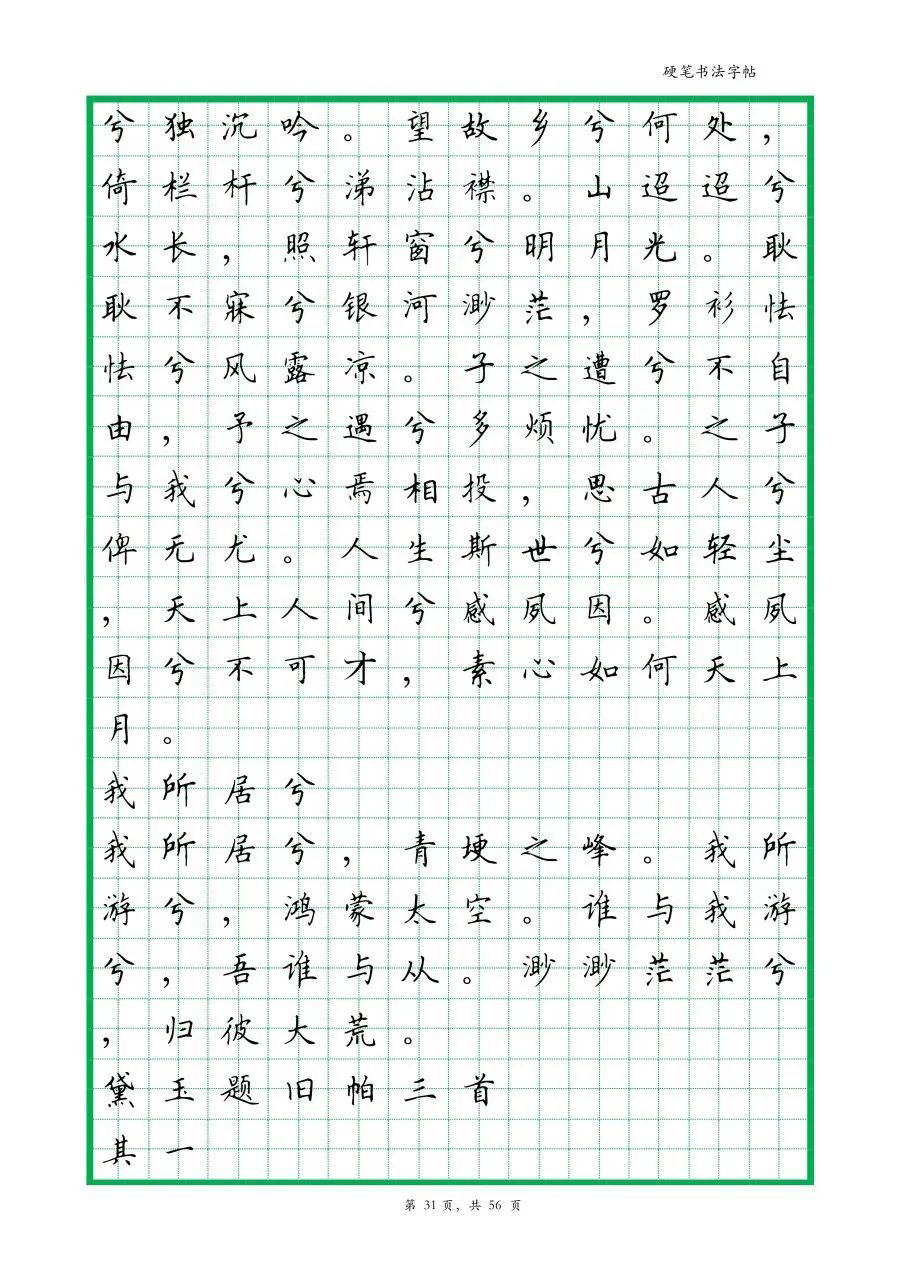 硬笔书法字帖
兮独沉吟。望故乡兮何处，
倚栏杆兮涕沾襟。山迢迢兮
水长，照轩窗兮明月光。耿
耿不寐兮银河渺茫，罗衫怯
怯兮风露凉。子之遭兮不自
由，予之遇兮多烦忧。之子
与我兮心焉相投，思古人兮
俾无尤。人生斯世兮如轻尘
，天上人间兮感夙因。感夙
因兮不可才，素心如何天上
月。
我所居兮
我所居兮，青埂之峰。我所
游兮，鸿蒙太空。谁与我游
兮，吾谁与从。渺渺茫茫兮
，归彼大荒。
黛玉题旧帕三首
其一
第 31 页，共 56 页